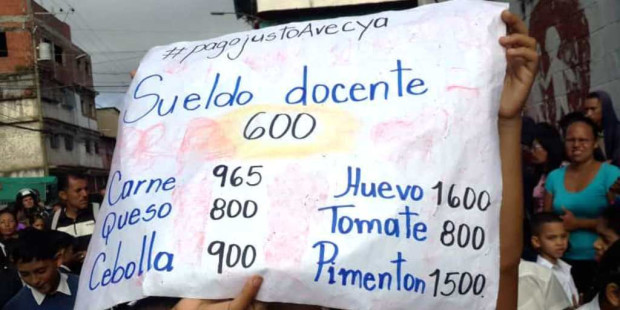 #pagojustoAvecya
Sueldo docente
600
Carne 965
Queso 800
Cebolla 900
Huevo 1600
Tomate 800
Pimenton 1500